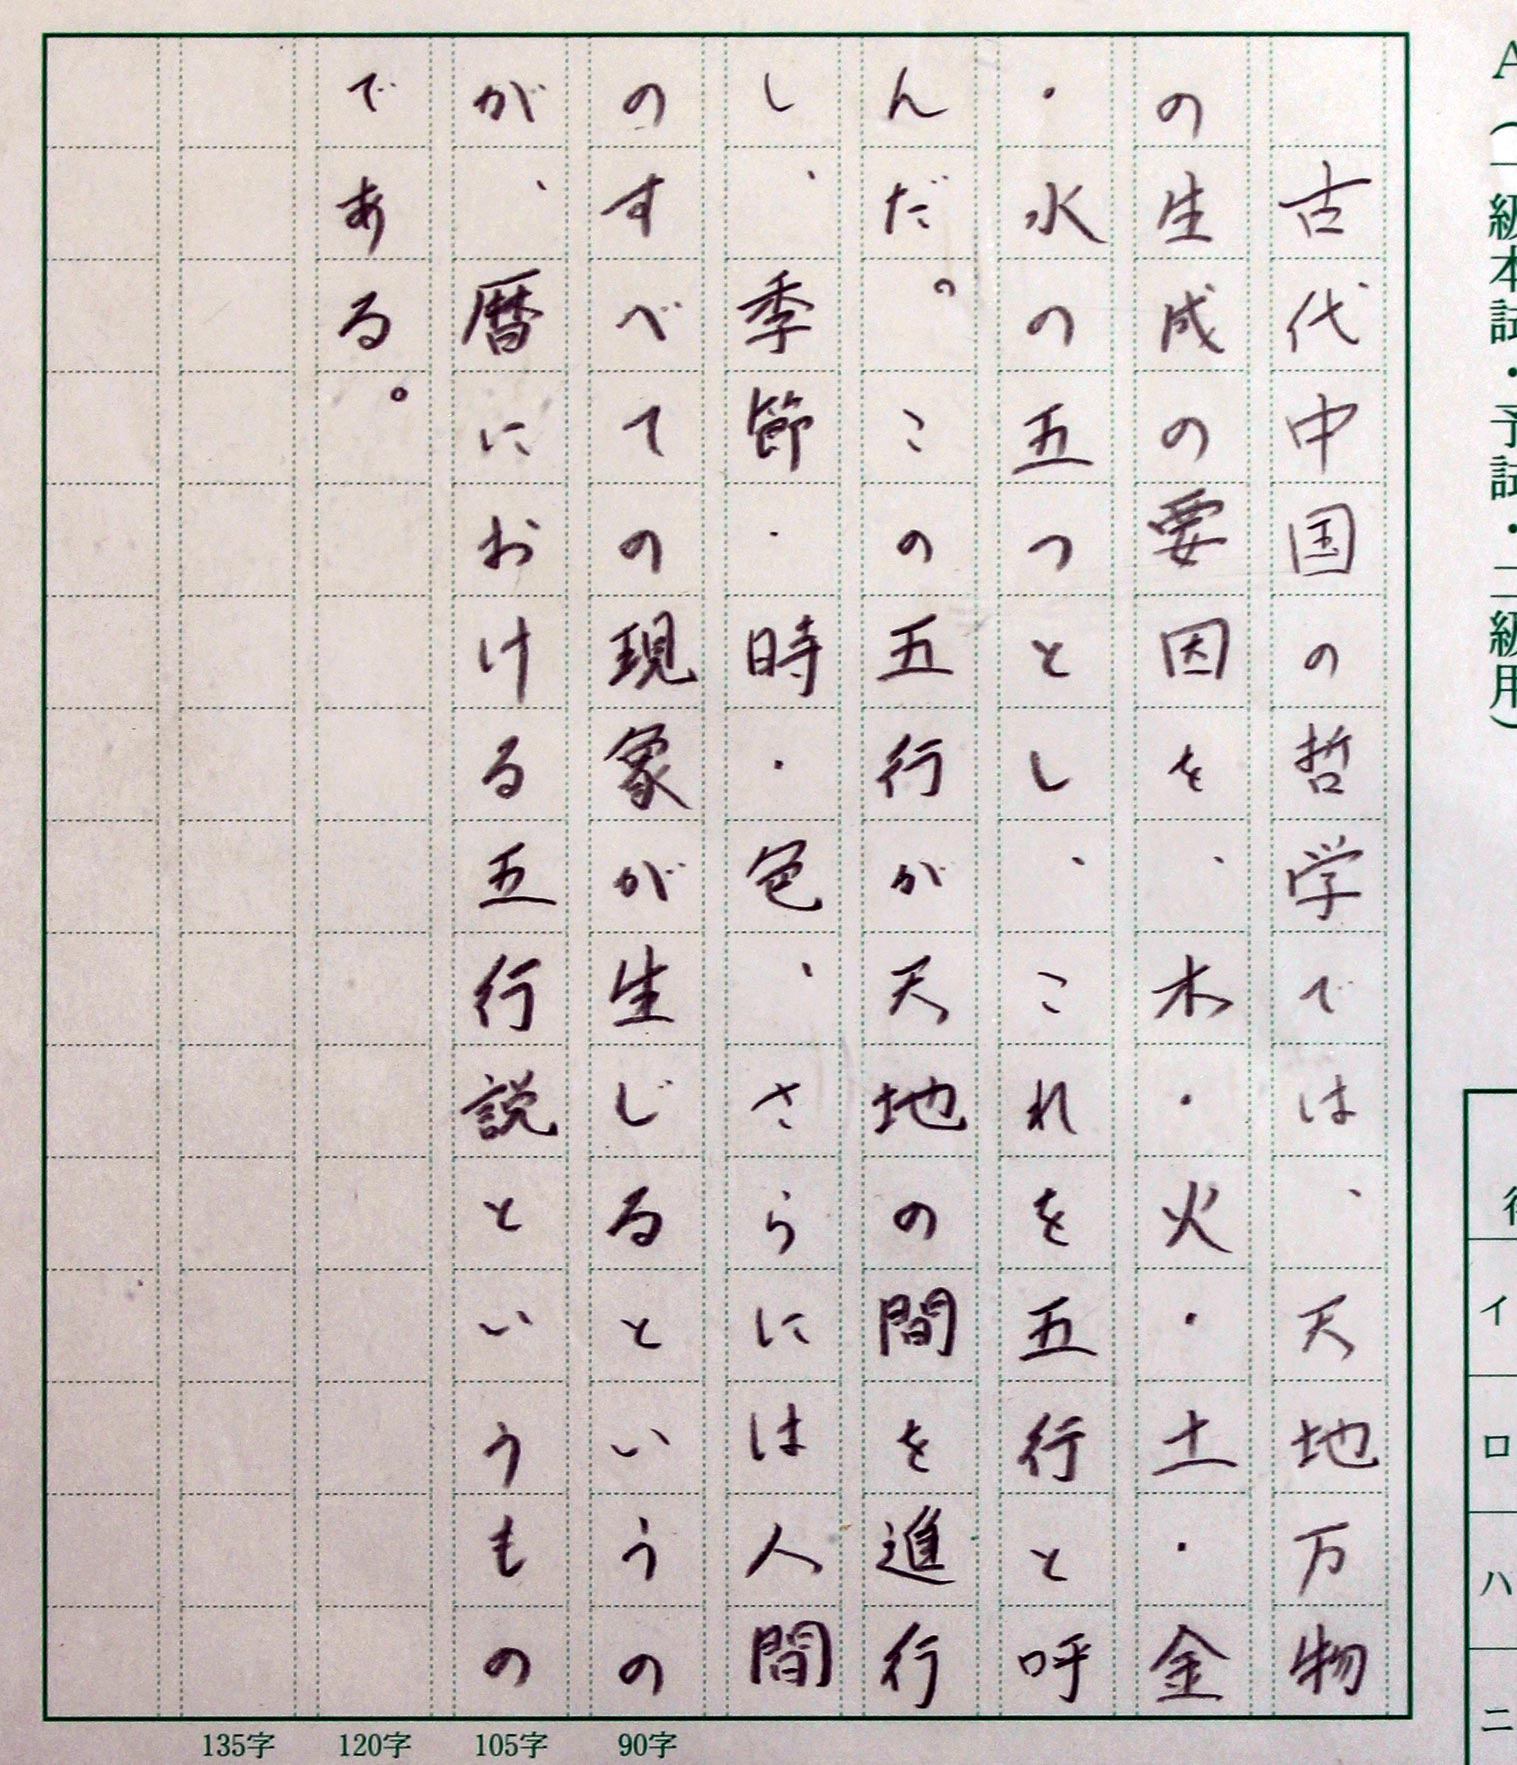 A(一級本試・予試・二級用)
イ
ロ
ハ
ニ
古代中国の哲学では、天地万物
の生成の要因を、木・火・土・金
・水の五つとし、これを五行と呼
んだ。この五行が天地の間を進行
し、季節・時・色、さらには人間
のすべての現象が生じるというの
が、暦における五行説というもの
である。
90字
105字
120字
135字